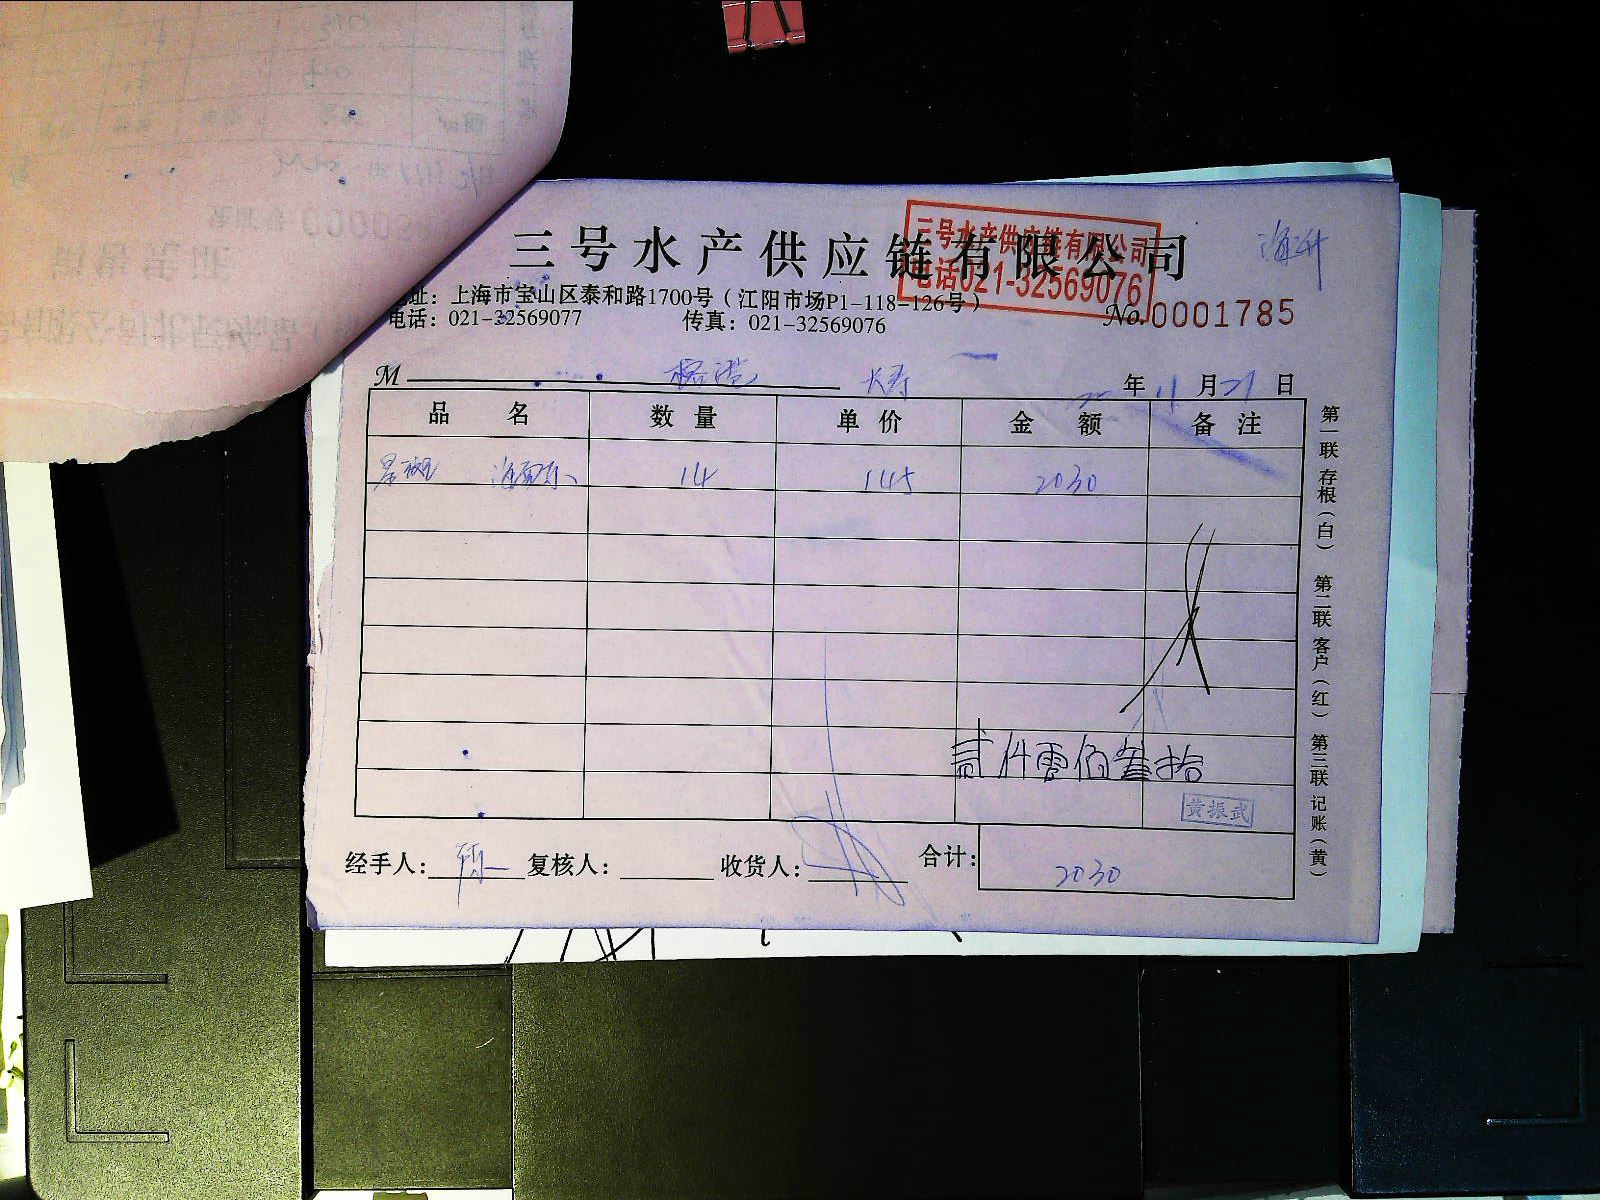 三号水产供应链有限公司
三号水产供应链有限公司
电话021-32569076
址：上海市宝山区泰和路1700号（江阳市场P1-118-126号）
电话：021-32569077 传真：021-32569076
No.0001785
M
年 11 月 21 日
品名 数量 单价 金额 备注
14 145 2030
贰仟零佰叁拾
黄振武
经手人： 复核人： 收货人： 合计： 2030
第一联 存根（白） 第二联 客户（红） 第三联 记账（黄）